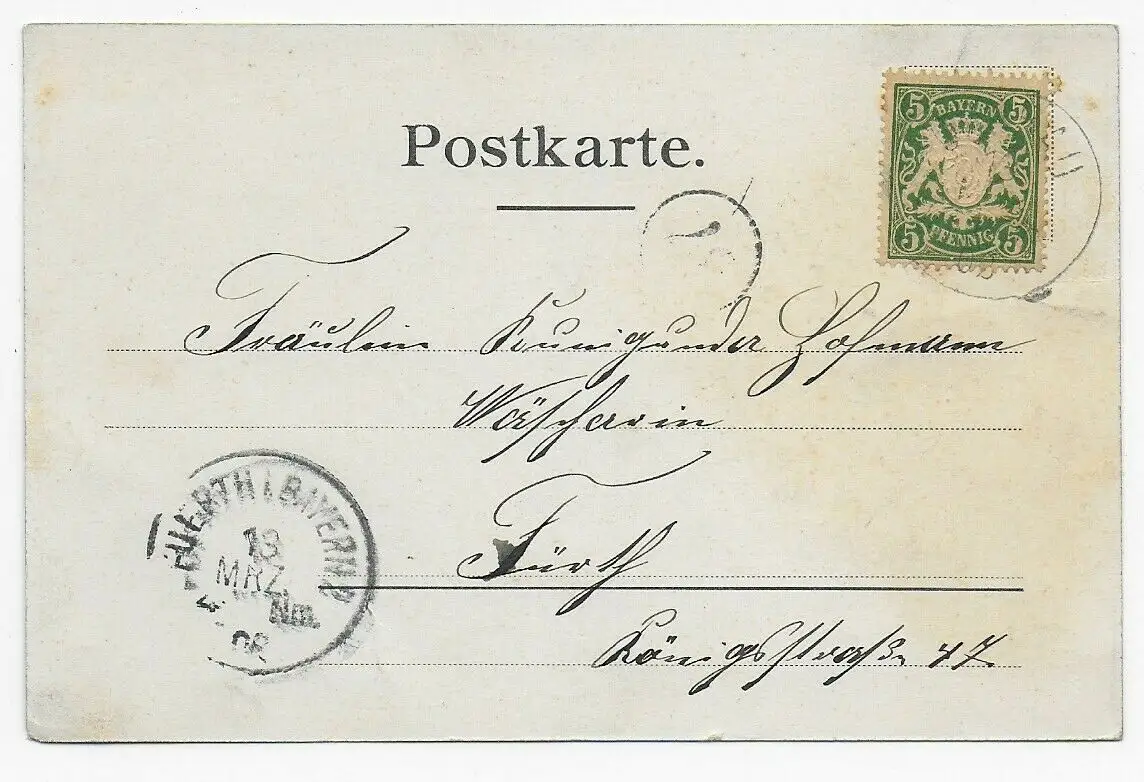 Postkarte.
5 BAYERN 5
5 PFENNIG 5
Fräulein Kunigunda Hofmann
Wäscherin
Fürth
Königsstraße 47.
FUERTH I. BAYERN
MRZ.
Nm.
08